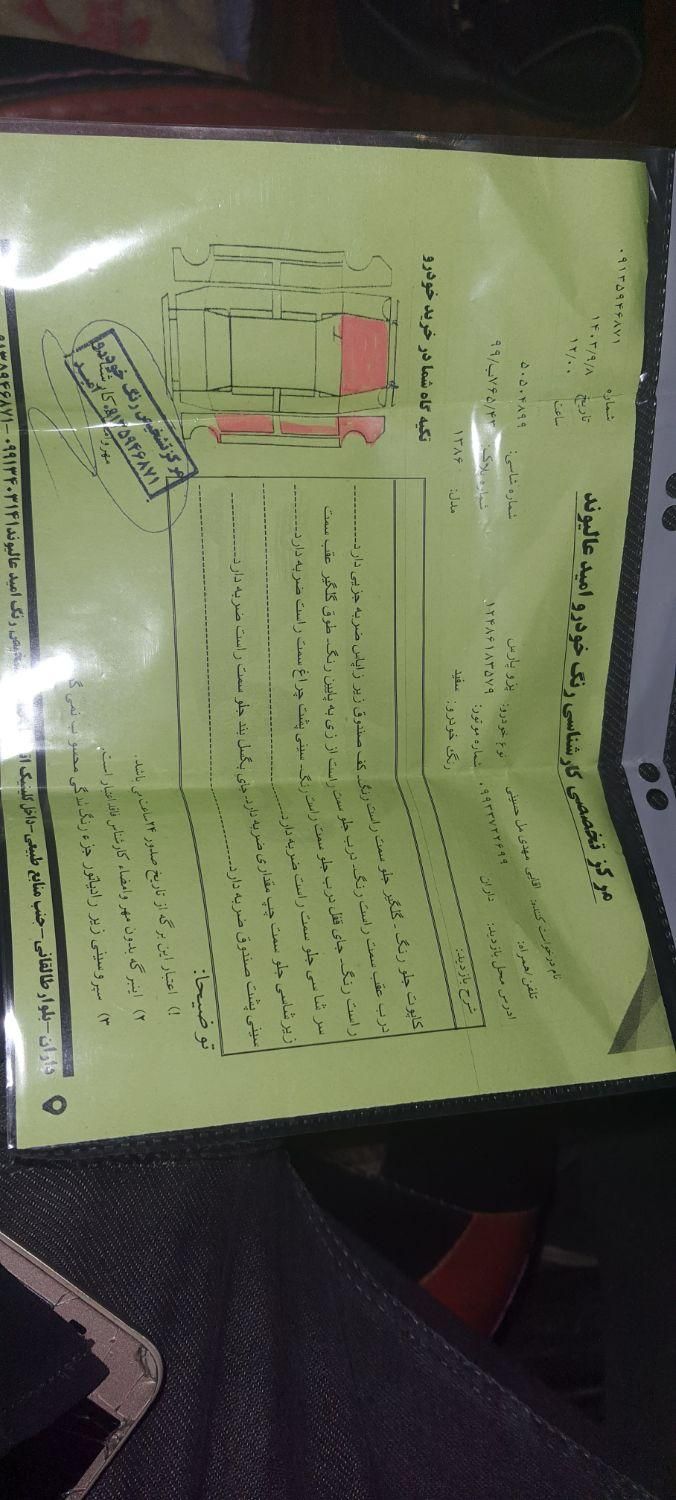 مرکز تخصصی کارشناسی رنگ خودرو امید عالیوند
شماره ۰۹۱۳۵۹۴۶۸۷۱
تاریخ ۱۴۰۳/۹/۸
ساعت ۱۲/۰۰
نام درخواست کننده: اقای مهدی مل حسینی
تلفن همراه: ۰۹۹۳۷۲۲۶۹۹
ادرس محل بازدید: داران
نوع خودرو: پژو پارس
شماره موتور: ۱۲۴۸۶۱۸۳۵۷۹
رنگ خودرو: سفید
شماره شاسی: ۵۰۵۰۴۸۹۹
شماره پلاک:
مدل: ۱۳۸۶
شرح بازدید:
کاپوت جلو رنگ . گلگیر جلو سمت راست رنگ. کف صندوق زیر زاپاس ضربه جزیی دارد
درب عقب سمت راست رنگ. درب جلو سمت راست از زی به پایین رنگ. طوق گلگیر عقب سمت
راست رنگ. جای قفل درب جلو سمت راست رنگ. سینی پشت چراغ سمت راست ضربه دارد
سر شاسی جلو سمت راست ضربه دارد
زیر شاسی جلو سمت چپ مقداری ضربه دارد. جای بکسل بند جلو سمت راست ضربه دارد
سینی پشت صندوق ضربه دارد
تکیه گاه شما در خرید خودرو
توضیحا:
۱) اعتبار این برگه از تاریخ صدور ۲۴ ساعت می باشد.
۲) اینبرگه بدون مهر وامضاء کارشناس فاقد اعتبار است.
۳) سپر وسینی زیر رادیاتور جزء رنگ شدگی محسوب نمی گ
مرکز تشخیص رنگ خودرو
امید
۰۹۱۳۵۹۴۶۸۷۱
داران -بلوار طالقانی -جنب منابع طبیعی -داخل کلینیک
رنگ امید عالیوند ۰۹۹۱۳۴۰۳۱۴۱